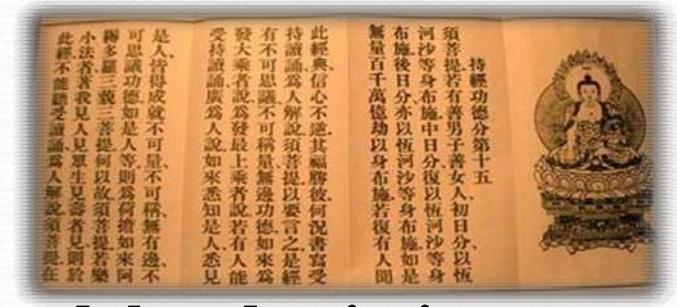 持經功德分第十五
須菩提、若有善男子善女人、初日分、以恆
河沙等身布施、中日分、復以恆河沙等身
布施、後日分、亦以恆河沙等身布施、如是
無量百千萬億劫、以身布施、若復有人、聞
此經典、信心不逆、其福勝彼、何況書寫受
持讀誦、爲人解說、須菩提、以要言之、是經
有不可思議、不可稱量、無邊功德、如來爲
發大乘者說、爲發最上乘者說、若有人能
受持讀誦、廣爲人說、如來悉知是人、悉見
是人、皆得成就不可量、不可稱、無有邊、不
可思議功德、如是人等、則爲荷擔如來阿
耨多羅三藐三菩提、何以故、須菩提、若樂
小法者、著我見人見眾生見壽者見、則於
此經、不能聽受讀誦、爲人解說、須菩提、在